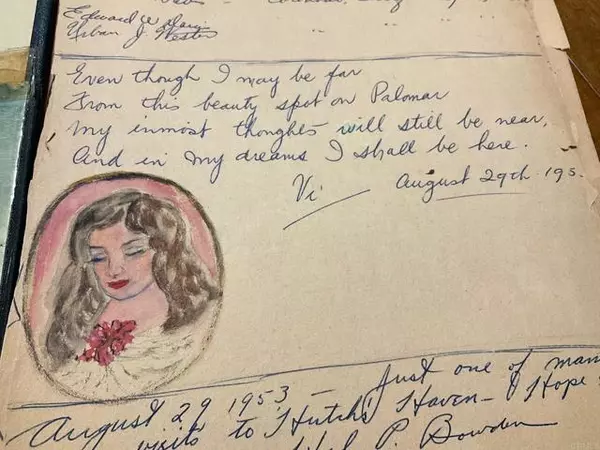 Edward W
Urban J.
Even though I may be far
From this beauty spot on Palomar
My inmost thoughts will still be near,
And in my dreams I shall be here.
Vi August 29th 195
August 29 1953 — Just one of man
visits to Hutch's Haven — I Hope
P. Bowden